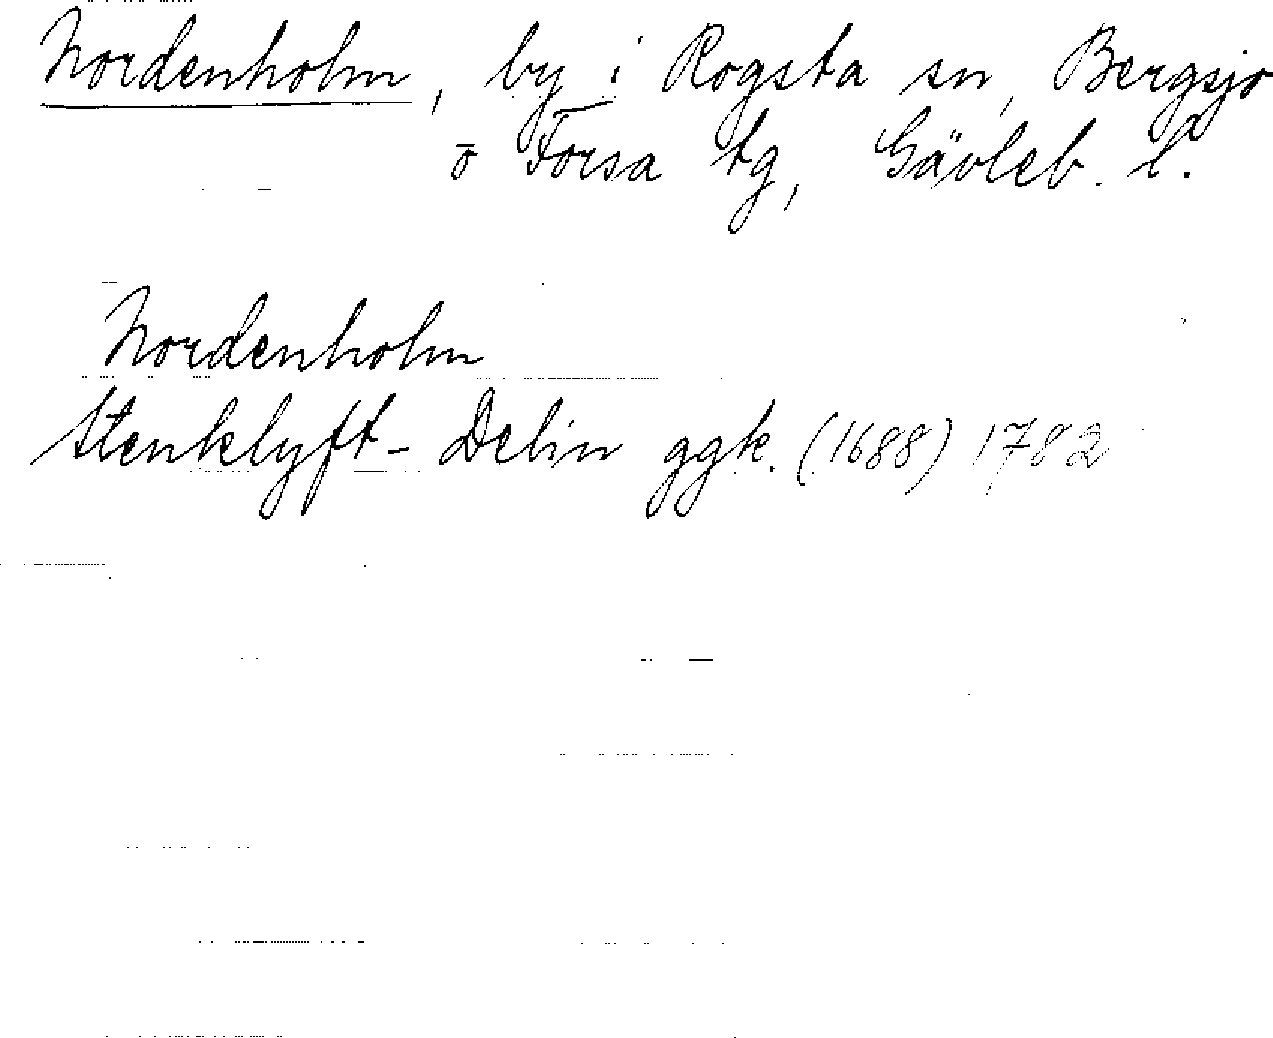 Nordenholm, by i Rogsta sn, Bergsjö
o Forsa tg, Gävleb. l.
Nordenholm
Stenklyft - Delin ggk. (1688) 1782